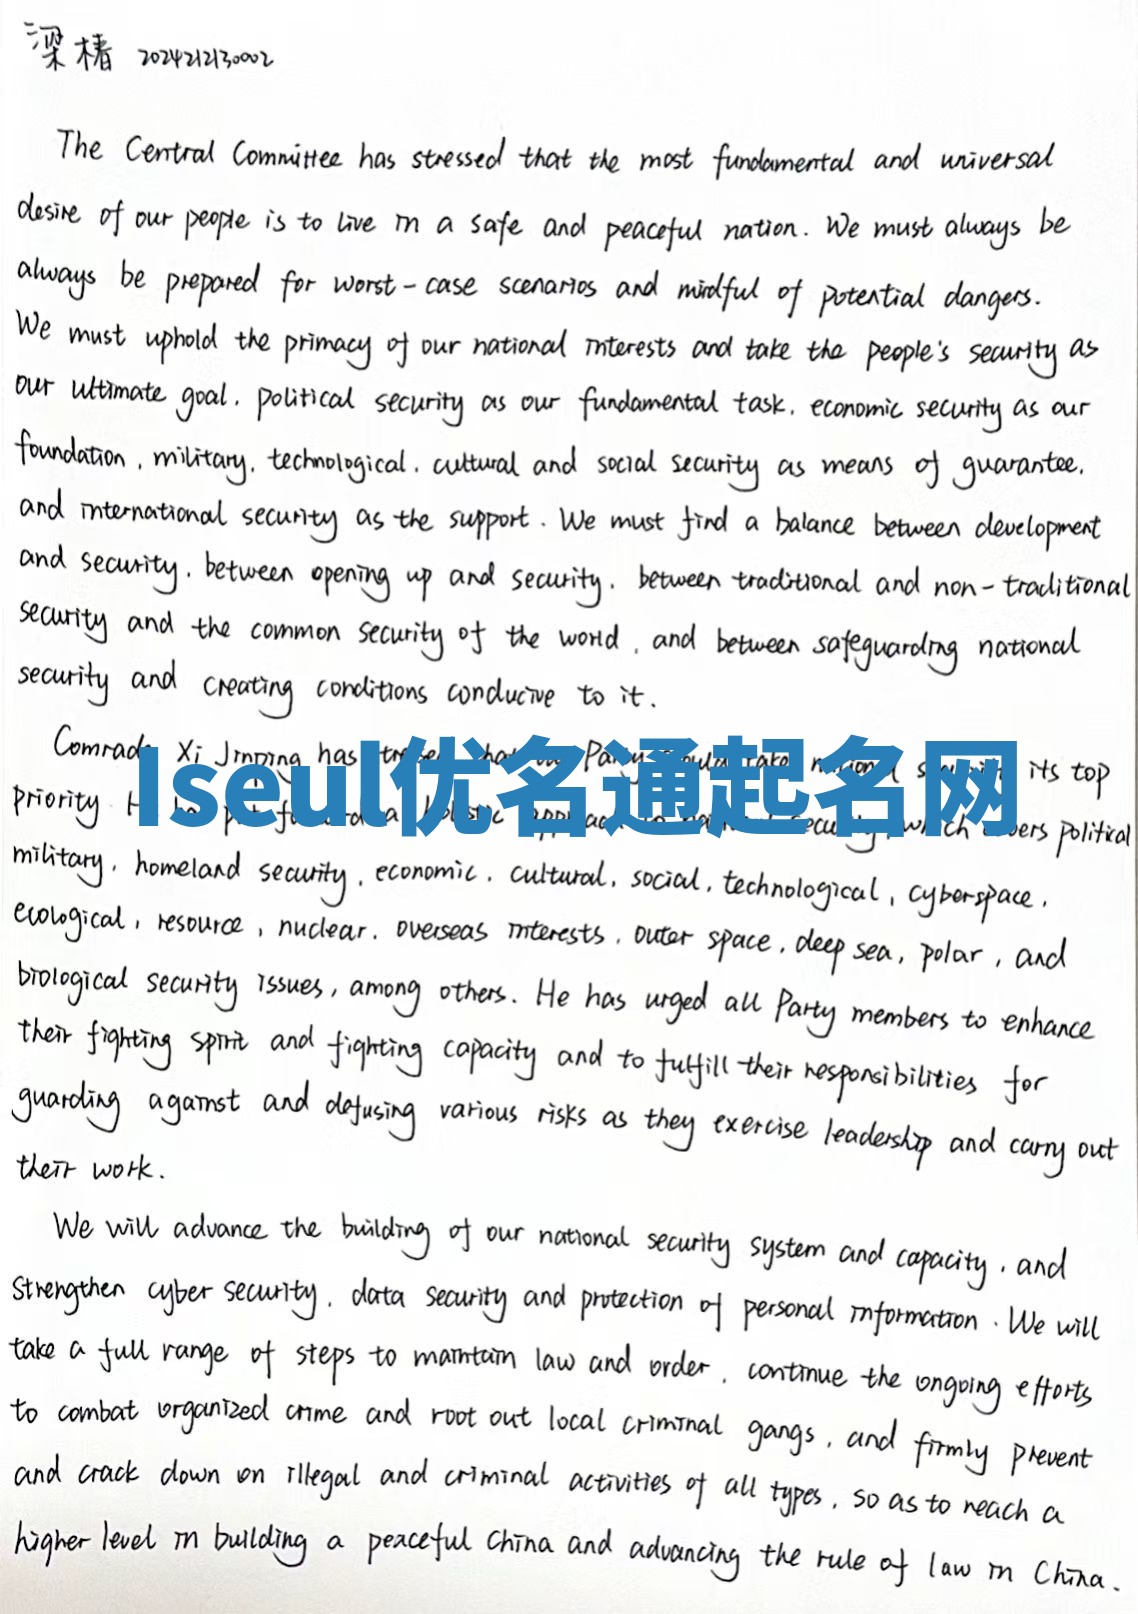 梁椿 2024212130002
The Central Committee has stressed that the most fundamental and universal
desire of our people is to live in a safe and peaceful nation. We must always be
always be prepared for worst-case scenarios and mindful of potential dangers.
We must uphold the primacy of our national interests and take the people's security as
our ultimate goal, political security as our fundamental task, economic security as our
foundation, military, technological, cultural and social security as means of guarantee,
and international security as the support. We must find a balance between development
and security, between opening up and security, between traditional and non-traditional
security and the common security of the world, and between safeguarding national
security and creating conditions conducive to it.
Comrade Xi Jinping has that Party take national its top
Iseul优名通起名网
priority. security, which covers political
military, homeland security, economic, cultural, social, technological, cyberspace,
ecological, resource, nuclear, overseas interests, outer space, deep sea, polar, and
biological security issues, among others. He has urged all Party members to enhance
their fighting spirit and fighting capacity and to fulfill their responsibilities for
guarding against and defusing various risks as they exercise leadership and carry out
their work.
We will advance the building of our national security system and capacity, and
strengthen cyber security, data security and protection of personal information. We will
take a full range of steps to maintain law and order, continue the ongoing efforts
to combat organized crime and root out local criminal gangs, and firmly prevent
and crack down on illegal and criminal activities of all types, so as to reach a
higher level in building a peaceful China and advancing the rule of law in China.